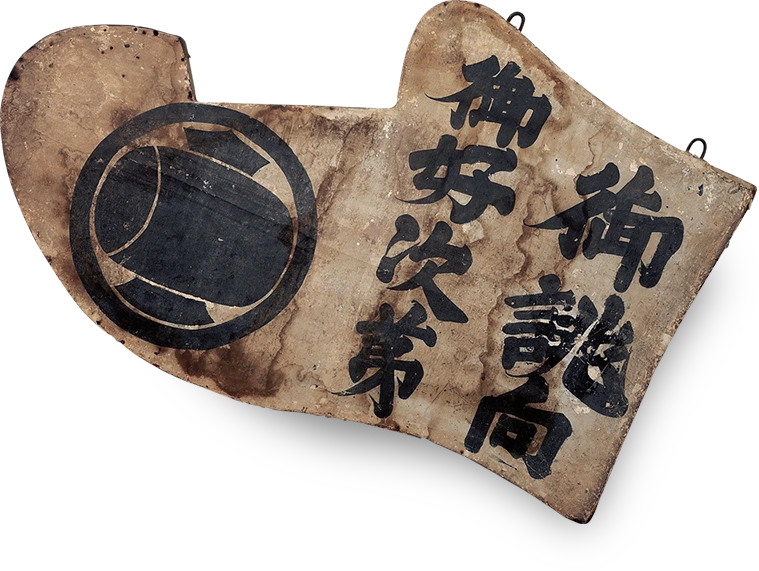 御誂向
御好次第